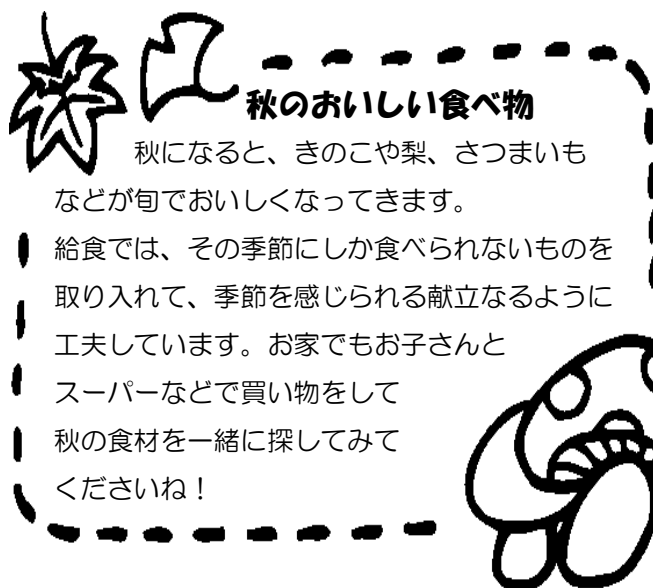 秋のおいしい食べ物
秋になると、きのこや梨、さつまいも
などが旬でおいしくなってきます。
給食では、その季節にしか食べられないものを
取り入れて、季節を感じられる献立なるように
工夫しています。お家でもお子さんと
スーパーなどで買い物をして
秋の食材を一緒に探してみて
くださいね！